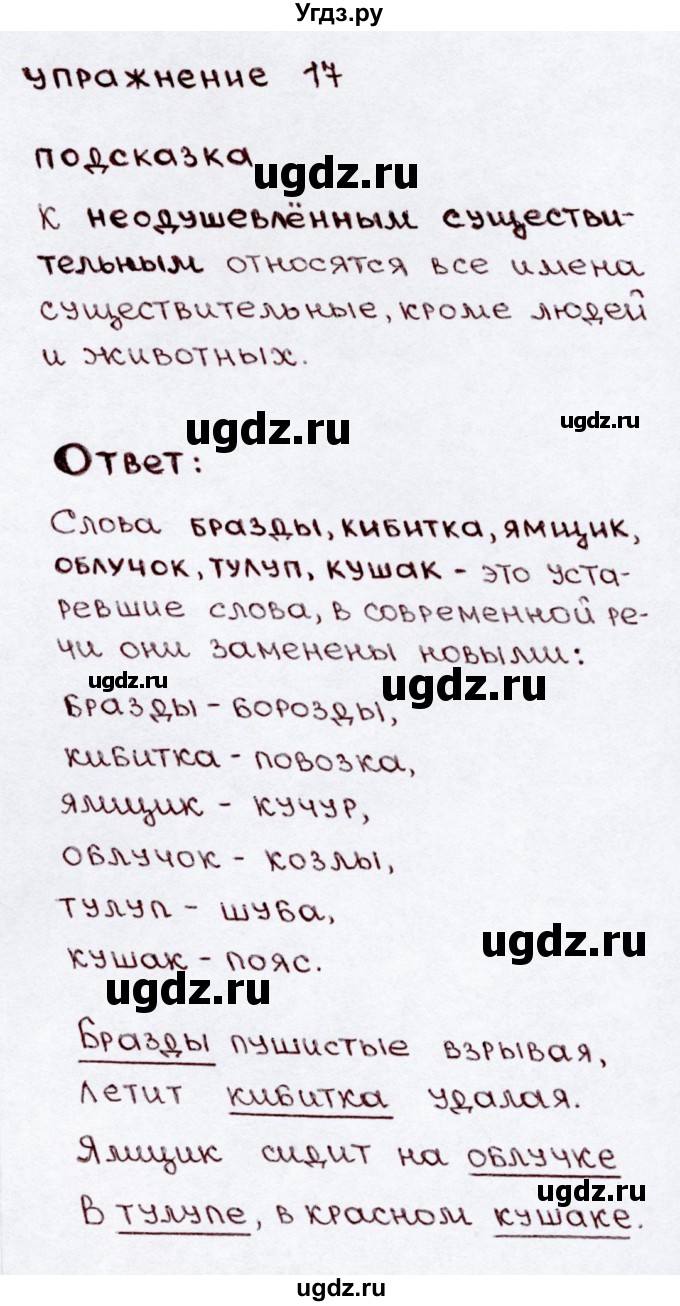 Угдз.ру
упражнение 17
подсказка
ugdz.ru
К неодушевлённым существи-
тельным относятся все имена
существительные, кроме людей
и животных.
ugdz.ru
ugdz.ru
Ответ:
Слова бразды, кибитка, ямщик,
облучок, тулуп, кушак - это уста-
ревшие слова, в современной ре-
чи они заменены новыми:
ugdz.ru
ugdz.ru
Бразды - борозды,
кибитка - повозка,
ямщик - кучур,
облучок - козлы,
тулуп - шуба,
ugdz.ru
кушак - пояс.
ugdz.ru
Бразды пушистые взрывая,
Летит кибитка удалая.
Ямщик сидит на облучке
ugdz.ru
В тулупе, в красном кушаке.
ugdz.ru